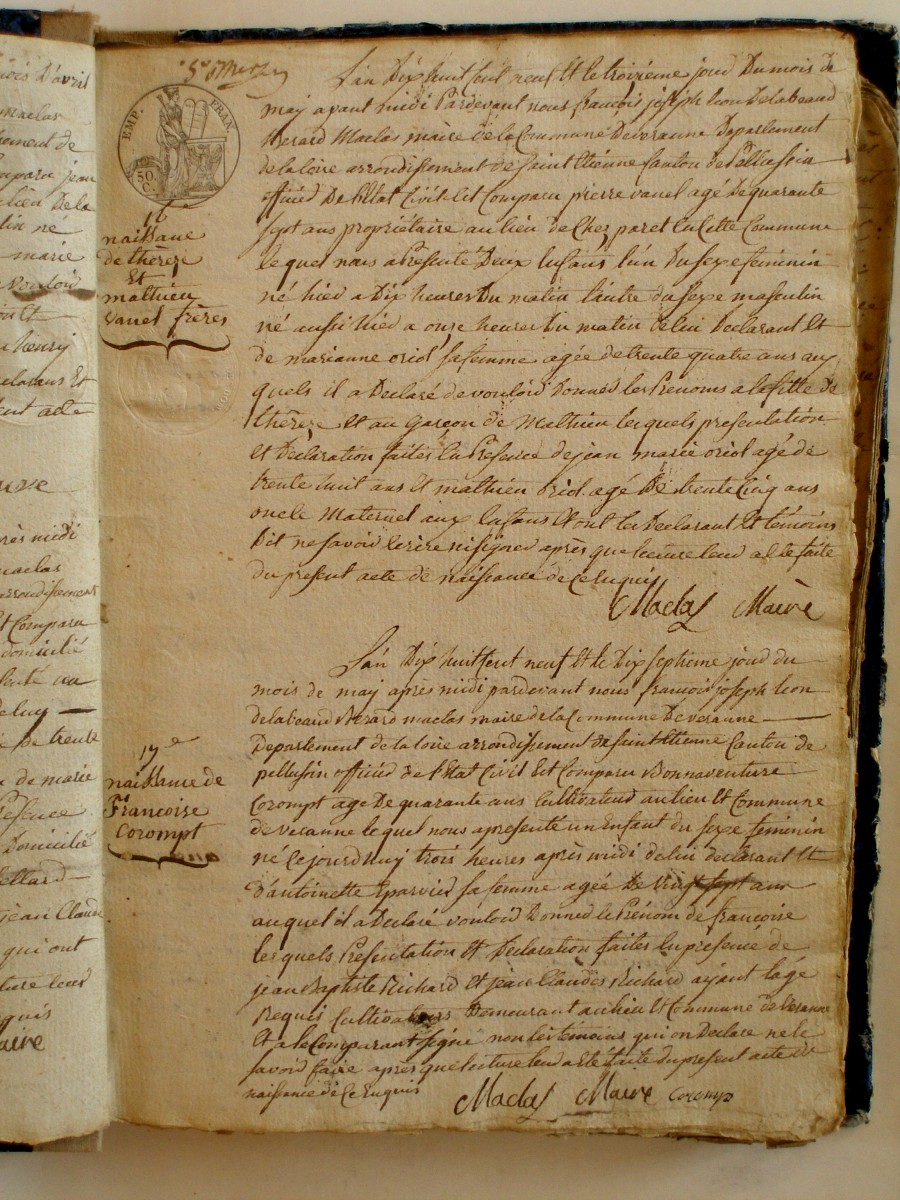 mois d'avril
maclas
EMP. FRAN.
50 C.
16e
naissance
de therese
Et
mathieu
vanel frères
L'an Dix huit Cent neuf Et le troizieme jour Du mois de
may avant midi Pardevant nous françois joseph leon Delabeaud
Berard Maclas maire de la Commune De veranne Departement
de la loire arrondissement de Saint Etienne Canton de Pellussin
officier De l'Etat Civil Est Comparu pierre vanel agé De quarante
sept ans propriétaire au lieu de Chez paret En Cette Commune
lequel nous a Presenté Deux Enfans l'un Du sexe feminin
né hier a Dix heures Du matin l'autre du sexe masculin
né aussi hier a onze heures Du matin de lui Declarant Et
de marianne oriol sa femme agée de trente quatre ans aux
quels il a Declaré de vouloir Donner les Prenoms a la fille De
thérèze Et au garçon de Mathieu les quels presentation
Et Declaration faites En Presence de jean marie oriol agé de
trente huit ans Et mathieu oriol agé De trente Cinq ans
oncle Maternel aux Enfans Et ont les Declarant Et témoins
Dit ne savoir Ecrire ni signer après que lecture leur a Eté faite
du present acte de naissance de Ce Enquis
Maclas Maire
17e
naissance de
Françoise
Corompt
L'an Dix huit Cent neuf Et le Dix septieme jour du
mois de may après midi pardevant nous françois joseph leon
delabeaud Berard maclas maire de la Commune De veranne
Departement de la loire arrondissement de Saint Etienne Canton de
pellussin officier de l'Etat Civil Est Comparu Bonnaventure
Corompt age De quarante ans Cultivateur au lieu Et Commune
de veranne lequel nous a presenté un Enfant du sexe feminin
né Cejourd'huy trois heures après midi de lui declarant Et
D'antoinette Eparvier sa femme agée De vingt sept ans
auquel il a Declaré vouloir Donner le Prenom de françoise
les quels Presentation Et Declaration faites En presence de
jean Baptiste Richard Et jean Claude Richard ayant l'age
Requis Cultivateurs Demeurant au lieu Et Commune de Veranne
Et a le Comparant signé non les témoins qui on Declare ne le
savoir faire après que lecture leur a Eté faite du present acte de
naissance de Ce Enquis
Maclas Maire Coromp